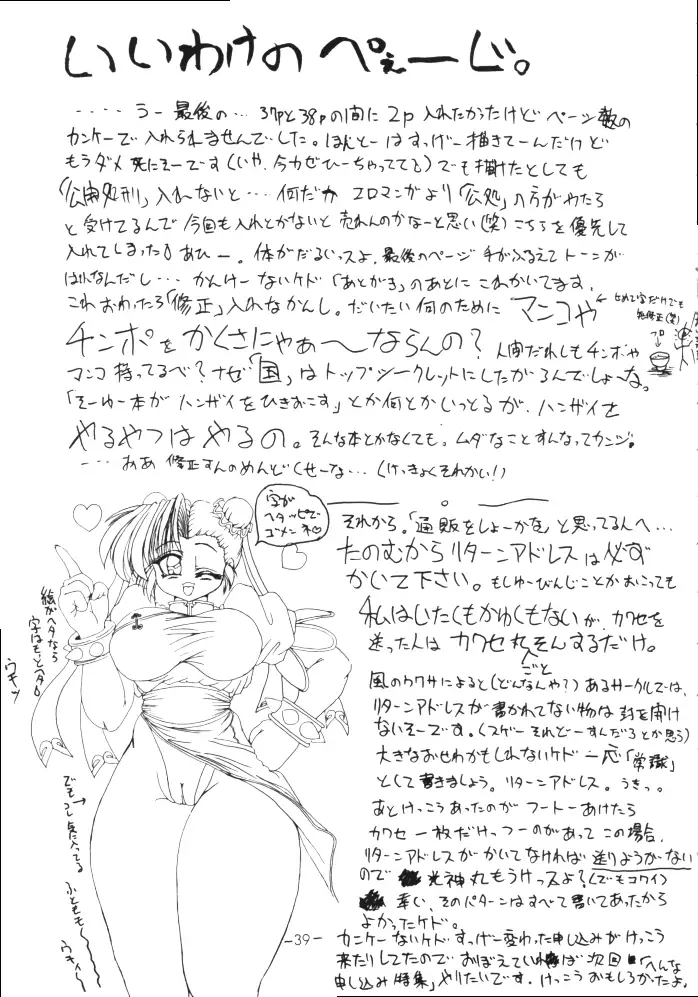 いいわけの ぺぇーじ。
‥‥ うー 最後の… 37pと38pの間に 2p 入れたかったけど ページ数の
カンケーで 入れられませんでした。ほんとーは すっげー描きてーんだけど
もうダメ 死にそーです(いや、今カゼひーちゃってて)でも描けたとしても
「公開処刑」入れないと… 何だか エロマンガより「公処」の方がやたら
と受けてるんで 今回も入れとかないと 売れんのかなーと思い(笑) こちらを優先して
入れてしまった あひー。体がだるいっスよ。最後のページ 手がふるえてトーンが
はれなんだし… かんけーないケド「あとがき」のあとに これかいてます。
これおわったら「修正」入れなかんし。だいたい何のために マンコや
チンポを かくさにゃあ〜ならんの? 人間だれしもチンポや
マンコ 持ってるべ? ナゼ「国」は トップシークレットにしたがるんでしょーな。
「そーゆー本が ハンザイをひきおこす」とか何とかいっとるが、ハンザイを
やるやつは やるの。そんな本とかなくても。ムダなことすんなってカンジ。
‥‥ ああ 修正すんのめんどくせーな… (けっきょくそれかい!)
せめて字だけでも
無修正(笑)
字が
ヘタッピで
ゴメンネ♡
絵がヘタなら
字はもっとヘタ
ウキッ
でもコレ気に入ってる
ふともも〜
ウキィー
それから。「通販をしよーかな」と思ってる人へ…
たのむから リターンアドレスは必ず
かいて下さい。もしゆーびんじことかおこっても
私はいたくもかゆくもない が、カワセを
送った人は カワセ丸ごとそんするだけ。
風のウワサによると(どんなんや?) あるサークルでは、
リターンアドレスが書かれてない物は 封を開け
ないそーです。(スゲー それどーすんだろとか思う)
大きなおせわかもしれないケド 一応「常識」
として書きましょう。リターンアドレス。うきっ。
あとけっこうあったのが フートーあけたら
カワセ 一枚だけっつーのがあって この場合、
リターンアドレスがかいてなければ 送りようがない
ので 光神丸もうけっスよ?(でもコワイ)
幸い、そのパターンはすべて書いてあったから
よかったケド。
カンケーないケド すっげー変わった申し込みがけっこう
来たりしてたので おぼえていれば 次回「へんな
申し込み特集」やりたいです。けっこうおもしろかったよ。
-39-